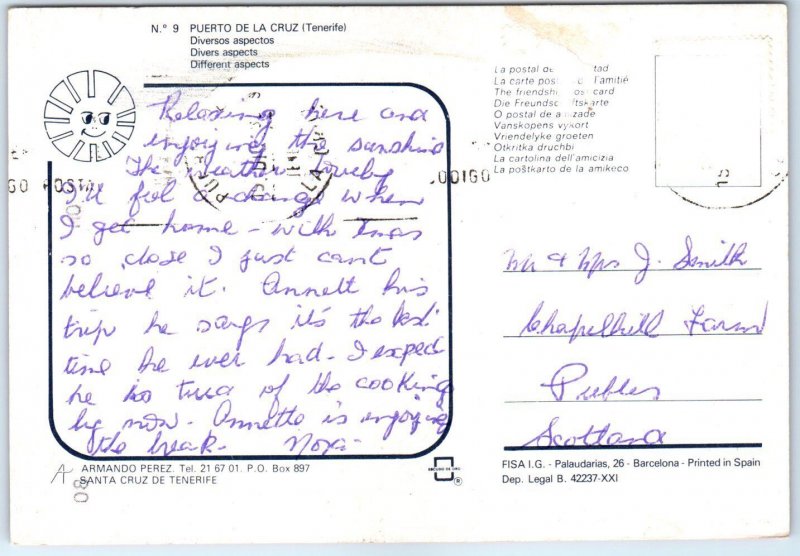 N.° 9 PUERTO DE LA CRUZ (Tenerife)
Diversos aspectos
Divers aspects
Different aspects
La postal de tad
La carte pos l'amitié
The friendsh card
Die Freundsc ftskarte
O postal de a zade
Vanskopens vykort
Vriendelyke groeten
Otkritka druchbi
La cartolina dell'amicizia
La poŝtkarto de la amikeco
Relaxing here and
enjoying the sunshine
The weather lovely
I'll feel a change when
I get home - with Xmas
so close I just can't
believe it. his
trip he says it's the best
time he ever had. I expect
he is of the cooking
by now. Annette is enjoying
the break. Nora.
GO POSTAL
CODIGO
Mr & Mrs J. Smith
Chapelhill Farm
Peebles
Scotland
ARMANDO PEREZ. Tel. 21 67 01. P.O. Box 897
SANTA CRUZ DE TENERIFE
ESCUDO DE ORO
®
FISA I.G. - Palaudarias, 26 - Barcelona - Printed in Spain
Dep. Legal B. 42237-XXI